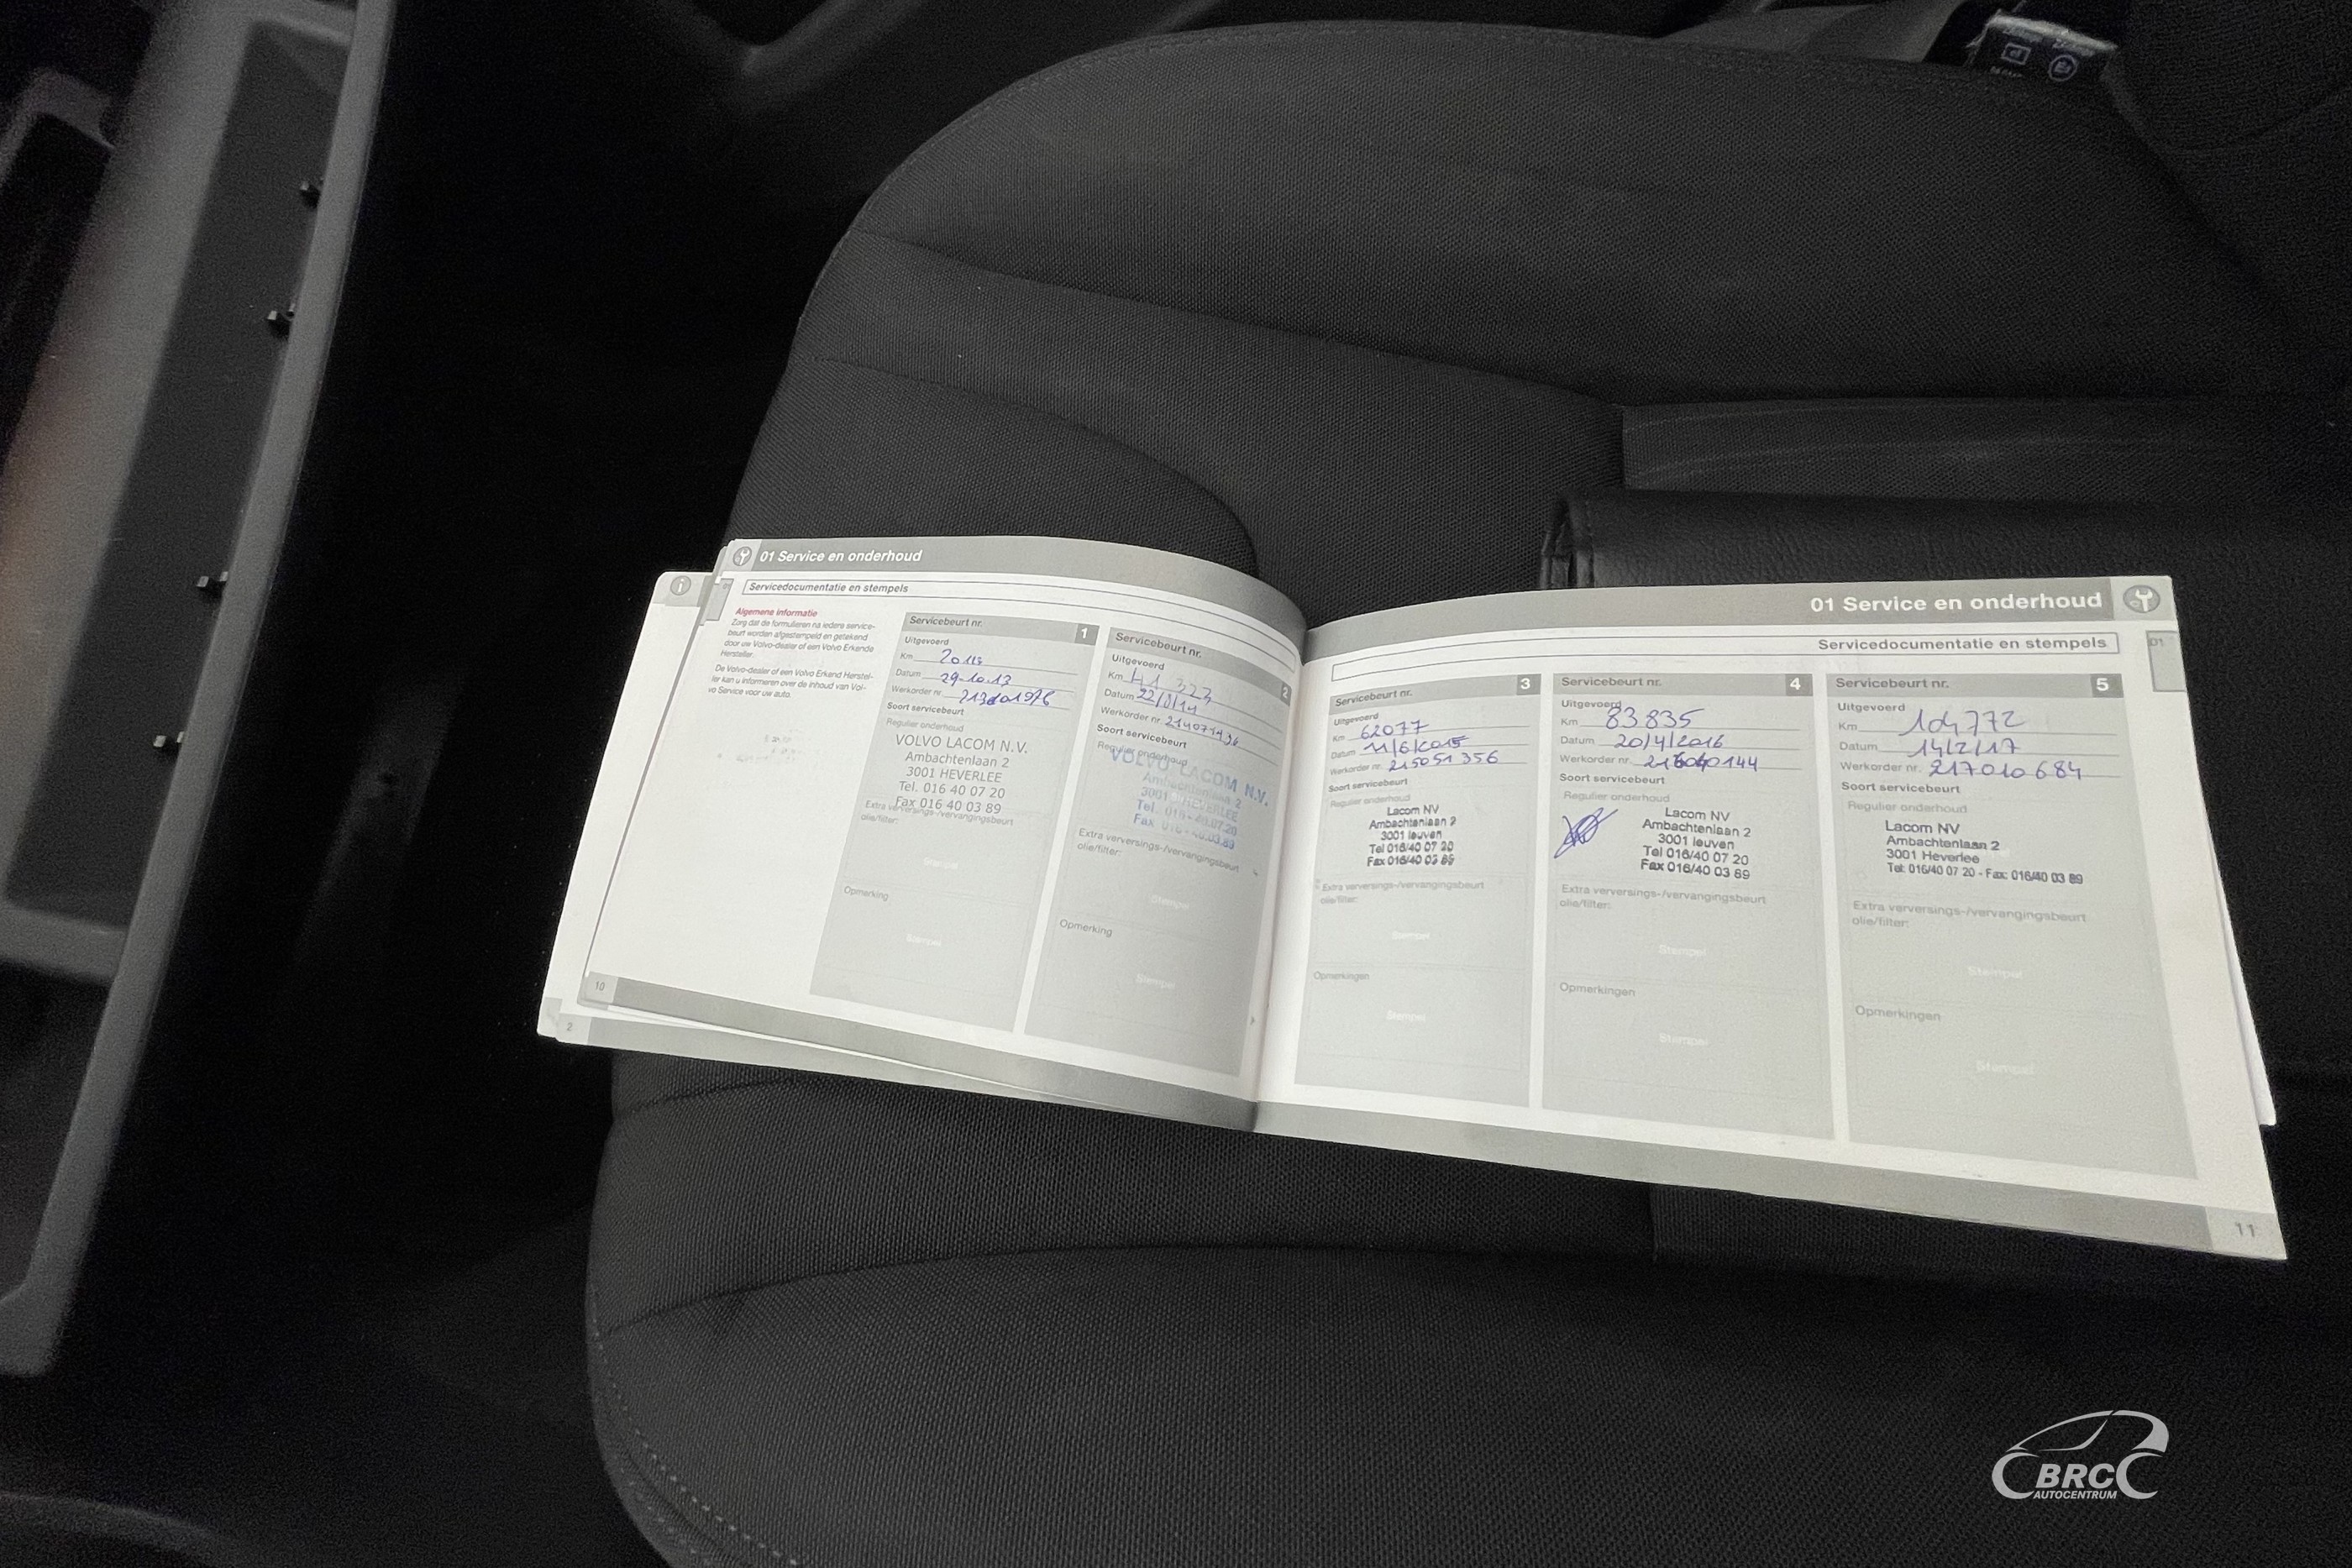 01 Service en onderhoud
Servicedocumentatie en stempels
Algemene informatie
Zorg dat de formulieren na iedere service-
beurt worden afgestempeld en getekend
door uw Volvo-dealer of een Volvo Erkende
Hersteller.
De Volvo-dealer of een Volvo Erkend Herstel-
ler kan u informeren over de inhoud van Vol-
vo Service voor uw auto.
Servicebeurt nr. 1
Uitgevoerd
Km
Datum 29-10-13
Werkorder nr.
Soort servicebeurt
Regulier onderhoud
VOLVO LACOM N.V.
Ambachtenlaan 2
3001 HEVERLEE
Tel. 016 40 07 20
Fax 016 40 03 89
Extra verversings-/vervangingsbeurt
olie/filter:
Stempel
Opmerking
Stempel
Servicebeurt nr. 2
Uitgevoerd
Km 41 323
Datum
Werkorder nr.
Soort servicebeurt
Regulier onderhoud
VOLVO LACOM N.V.
Ambachtenlaan 2
3001 HEVERLEE
Tel. 016 - 40.07.20
Fax 016 - 40.03.89
Extra verversings-/vervangingsbeurt
olie/filter:
Stempel
Opmerking
Stempel
10
2
01 Service en onderhoud
Servicedocumentatie en stempels
01
Servicebeurt nr. 3
Uitgevoerd
Km 62077
Datum 11/6/2015
Werkorder nr. 215051356
Soort servicebeurt
Regulier onderhoud
Lacom NV
Ambachtenlaan 2
3001 leuven
Tel 016/40 07 20
Fax 016/40 03 89
Extra verversings-/vervangingsbeurt
olie/filter:
Stempel
Opmerkingen
Stempel
Servicebeurt nr. 4
Uitgevoerd
Km 83835
Datum 20/4/2016
Werkorder nr.
Soort servicebeurt
Regulier onderhoud
Lacom NV
Ambachtenlaan 2
3001 leuven
Tel 016/40 07 20
Fax 016/40 03 89
Extra verversings-/vervangingsbeurt
olie/filter:
Stempel
Opmerkingen
Stempel
Servicebeurt nr. 5
Uitgevoerd
Km 104772
Datum 14/2/17
Werkorder nr. 217010684
Soort servicebeurt
Regulier onderhoud
Lacom NV
Ambachtenlaan 2
3001 Heverlee
Tel: 016/40 07 20 - Fax: 016/40 03 89
Extra verversings-/vervangingsbeurt
olie/filter:
Stempel
Opmerkingen
Stempel
11
BRC
AUTOCENTRUM